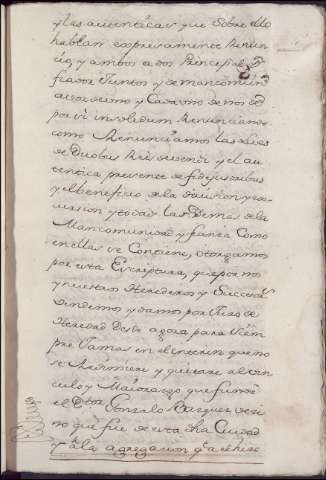 y las autenticas que sobre ello
hablan expresamente Renun
cio, y ambos a dos Principal y
fiador Juntos y de mancomun
a voz de uno y Cada uno de nos de
por si in solidum Renunciando
como Renunciamos las Leyes
de Duobus Reis devendi y el au
tentica presente de fide jusoribus
y el beneficio de la division y ex
cusion y todas las Demas de la
Mancomunidad y fianza Como
en ellas se Contiene, otorgamos
por esta Escriptura, que por nos
y nuestros Herederos y Succesores
Vendemos y damos por Juro de
Heredad Desde agora para siem
pre Jamas en el interin que no
se Redimiere y quitare al vin
culo y Maiorazgo que fundó
el Dtor Gonzalo Bazquez vezi
no que fue de esta dha Ciudad
y a la agregacion qe a el hizo